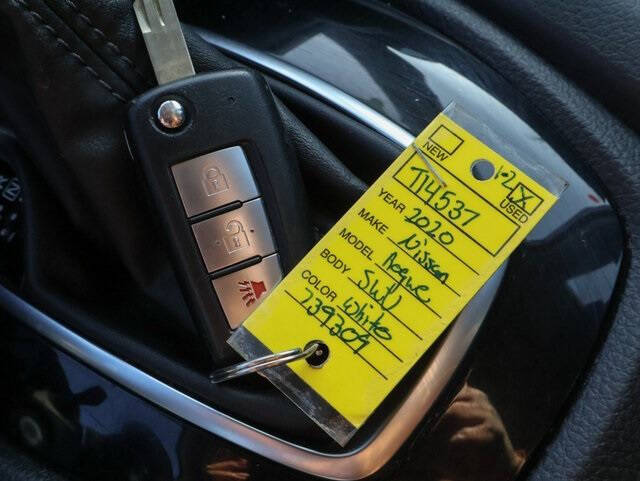 NEW
USED
T14537
YEAR 2020
MAKE Nissan
MODEL Rogue
BODY SUV
COLOR White
239309